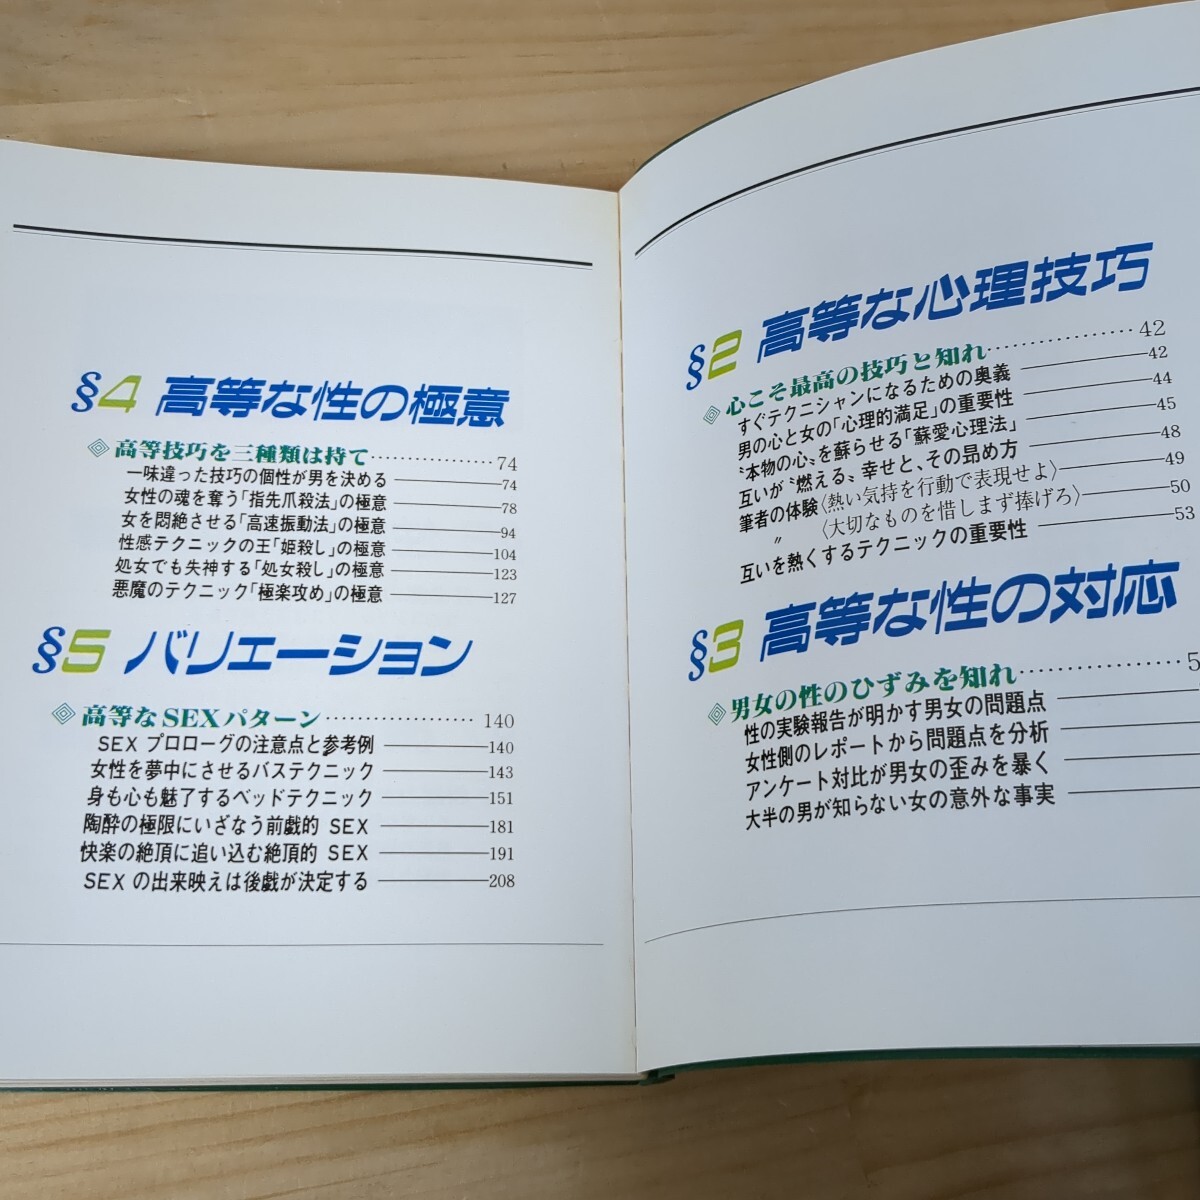 §2 高等な心理技巧
心こそ最高の技巧と知れ……………42
すぐテクニシャンになるための奥義 42
男の心と女の「心理的満足」の重要性 44
〝本物の心〟を蘇らせる「蘇愛心理法」 45
互いが〝燃える〟幸せと、その昻め方 48
筆者の体験〈熱い気持を行動で表現せよ〉 49
〃 〈大切なものを惜しまず捧げろ〉 50
互いを熱くするテクニックの重要性 53
§3 高等な性の対応
男女の性のひずみを知れ……………5
性の実験報告が明かす男女の問題点
女性側のレポートから問題点を分析
アンケート対比が男女の歪みを暴く
大半の男が知らない女の意外な事実
§4 高等な性の極意
高等技巧を三種類は持て……………74
一味違った技巧の個性が男を決める 74
女性の魂を奪う「指先爪殺法」の極意 78
女を悶絶させる「高速振動法」の極意 94
性感テクニックの王「姫殺し」の極意 104
処女でも失神する「処女殺し」の極意 123
悪魔のテクニック「極楽攻め」の極意 127
§5 バリエーション
高等なSEXパターン……………140
SEX プロローグの注意点と参考例 140
女性を夢中にさせるバステクニック 143
身も心も魅了するベッドテクニック 151
陶酔の極限にいざなう前戯的 SEX 181
快楽の絶頂に追い込む絶頂的 SEX 191
SEX の出来映えは後戯が決定する 208